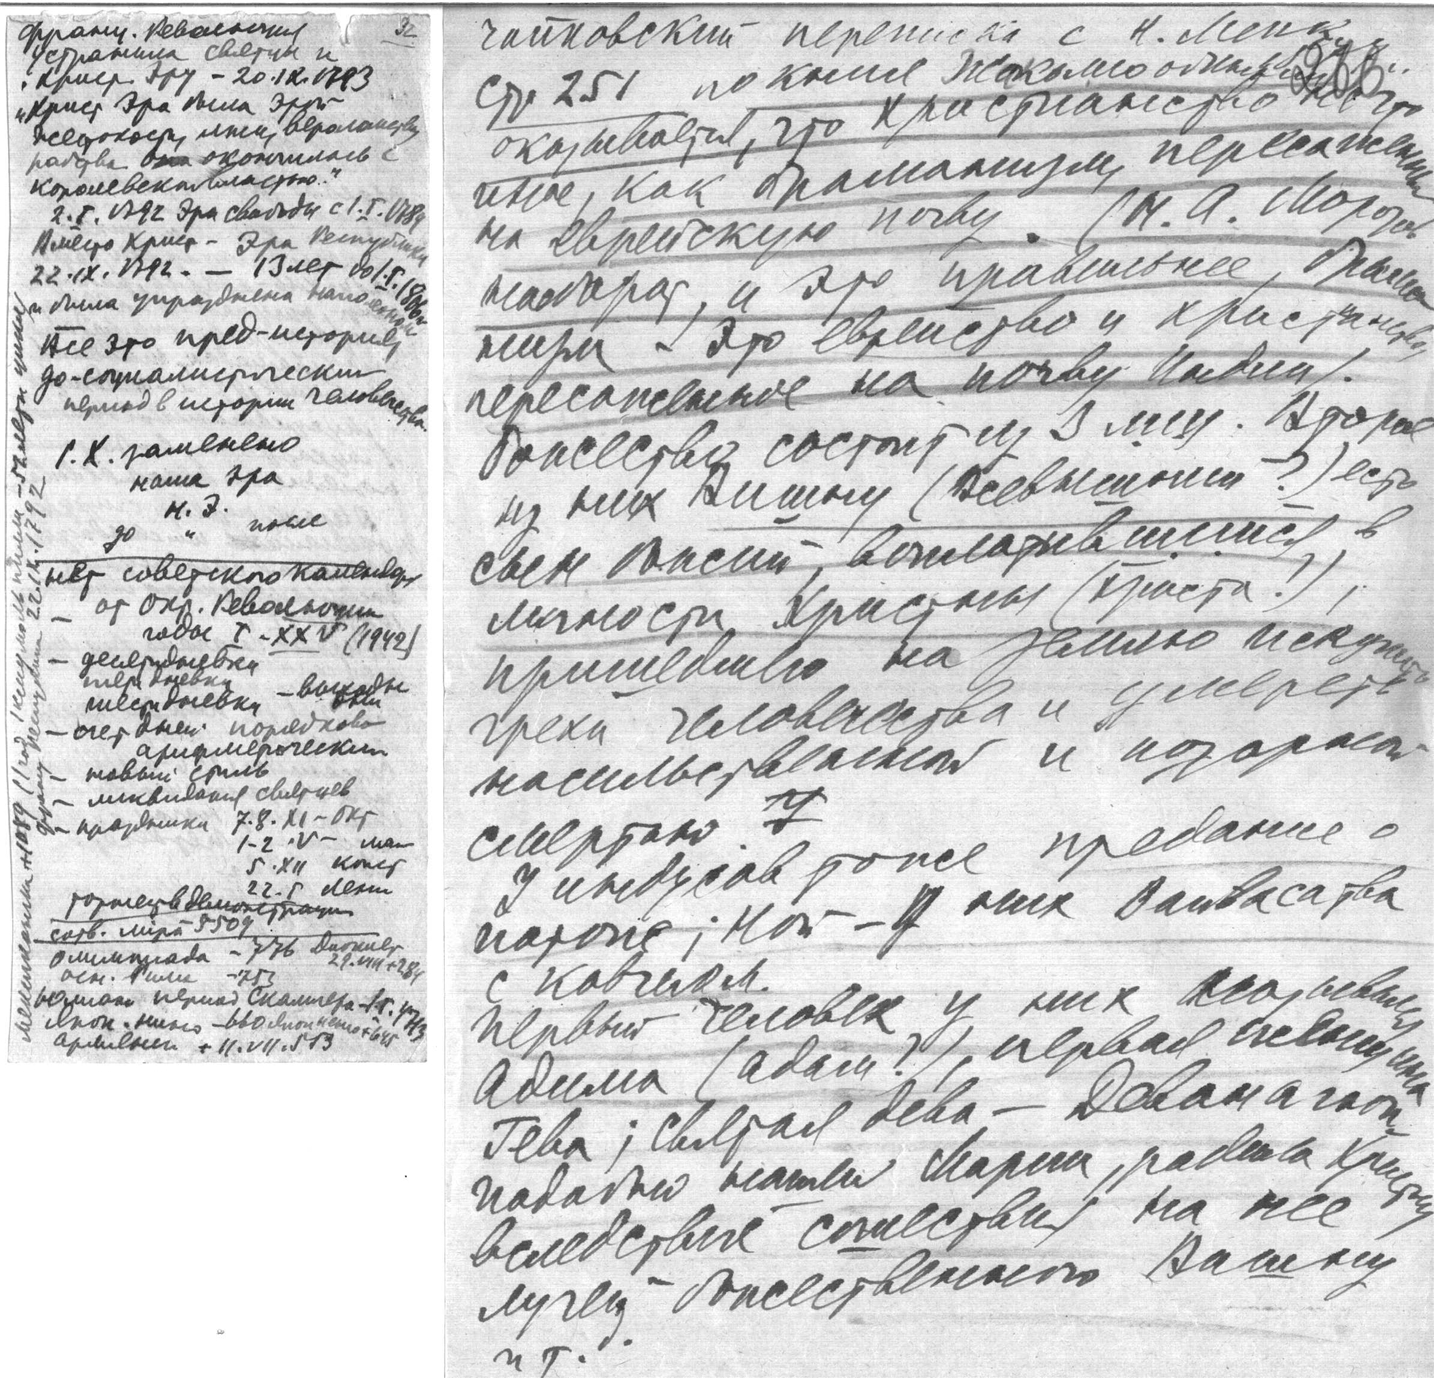 32
франц. Революция
устранила святцы и
Христ. Эру – 20.IX.1793
"Христ Эра была Эрой
жестокости, лжи, вероломства
рабства она окончилась с
королевской властью."
2.I.1792 Эра свободы с 1.I.1789
Вместо Христ – Эра Республики
22.IX.1792. — 13 лет до 1.I.1806
и была упразднена Наполеоном
Все это пред-история
до-социалистический
период в истории человечества.
Р.Х. заменено
наша эра
н. э.
до " после
нет советского календаря
– от Окт. Революции
годы I – XXV (1942)
– десятидневки
пятидневки
шестидневки – выходные дни
– счет дней порядково
арифметический
– новый стиль
– ликвидация святцев
– праздники 7.8.XI – Окт
1–2.V – мая
5.XII конст
22.I Лени
торжеств демонстрации
сотв. мира 5509
Олимпиада – 776 Диоклет
29.VIII+284
осн. Рима – 753
период Скалигера – 1.I.4713
Япон. – 660
армяне + 11.VII.553
22.IX.1792
чайковский переписка с Н. Мекк
288
стр 251 по книге Жакольо
оказывается, что христианство не что
иное, как браманизм, пересаженный
на еврейскую почву. (Н. А. Морозов
наоборот, и это правильнее, брама
низм – это еврейство и христианство,
пересаженное на почву Индии).
Божество состоит из 3 лиц. Второе
из них Вишну (Всевышний?) есть
сын божий, воплотившийся в
личности Христны (Христа!),
пришедшего на землю искупить
грехи человечества и умереть
насильственной и позорной
смертью
У индусов тоже предание о
потопе; Ной – у них Вайвасатва
с ковчегом.
Первый человек у них назывался
Адима (адам?), первая женщина
Гева; Святая дева – Деванагви,
подобно нашей Марии, родила Христну
вследствие сошествия на нее
лучей божественного Вишну
и т.